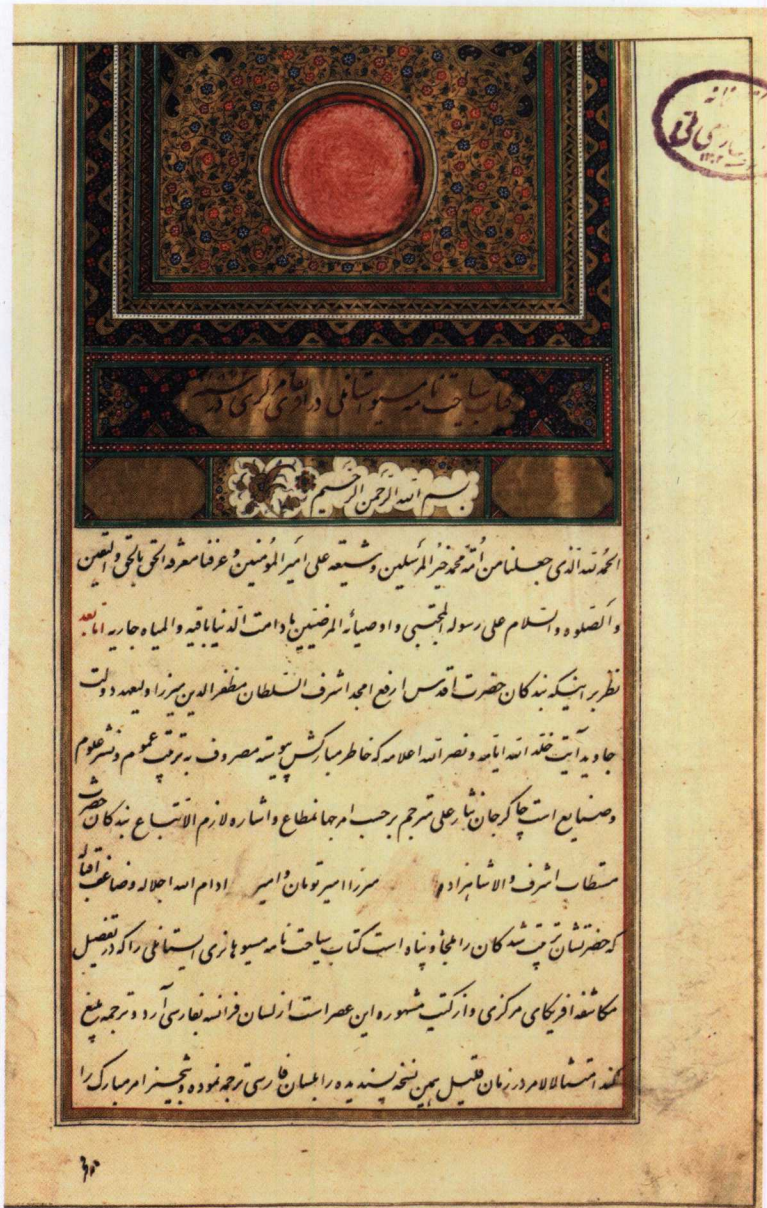 کتاب سیاحت نامه مسیو استانلی در افریقای مرکزی در
بسم الله الرحمن الرحیم
الحمد لله الذی جعلنا من امة محمد خیر المرسلین و شیعته علی امیر المؤمنین و عرفنا معرفة الحق بالحق والیقین
والصلوه والسلام علی رسوله المجتبی و اوصیائه المرضیین مادامت الدنیا باقیه والمیاه جاریه اما بعد
نظر بر اینکه بندکان حضرت اقدس ارفع امجد اشرف السلطان مظفرالدین میرزا ولیعهد دولت
جاوید آیت خلد الله ایامه و نصر الله اعلامه که خاطر مبارکش پیوسته مصروف به ترقی عموم و نشر علوم
و صنایع است چاکر جان نثار علی مترجم بر حسب امر جهانمطاع و اشاره لازم الاتباع بندکان حضرت
مستطاب اشرف والا شاهزاده میرزا امیر تومان و امیر ادام الله اجلاله و ضاعف اقباله
که حضرتشان تربیت شدکان را ملجأ و پناه است کتاب سیاحت نامه مسیو هانری استانلی را که در تفصیل
مکاشفه افریکای مرکزی و از کتب مشهوره این عصر است از لسان فرانسه بفارسی آرد و ترجمه بلیغ
کند امتثالا لامر در زمان قلیل همین نسخه پسندیده را بلسان فارسی ترجمه نموده و تنجیز امر مبارک را